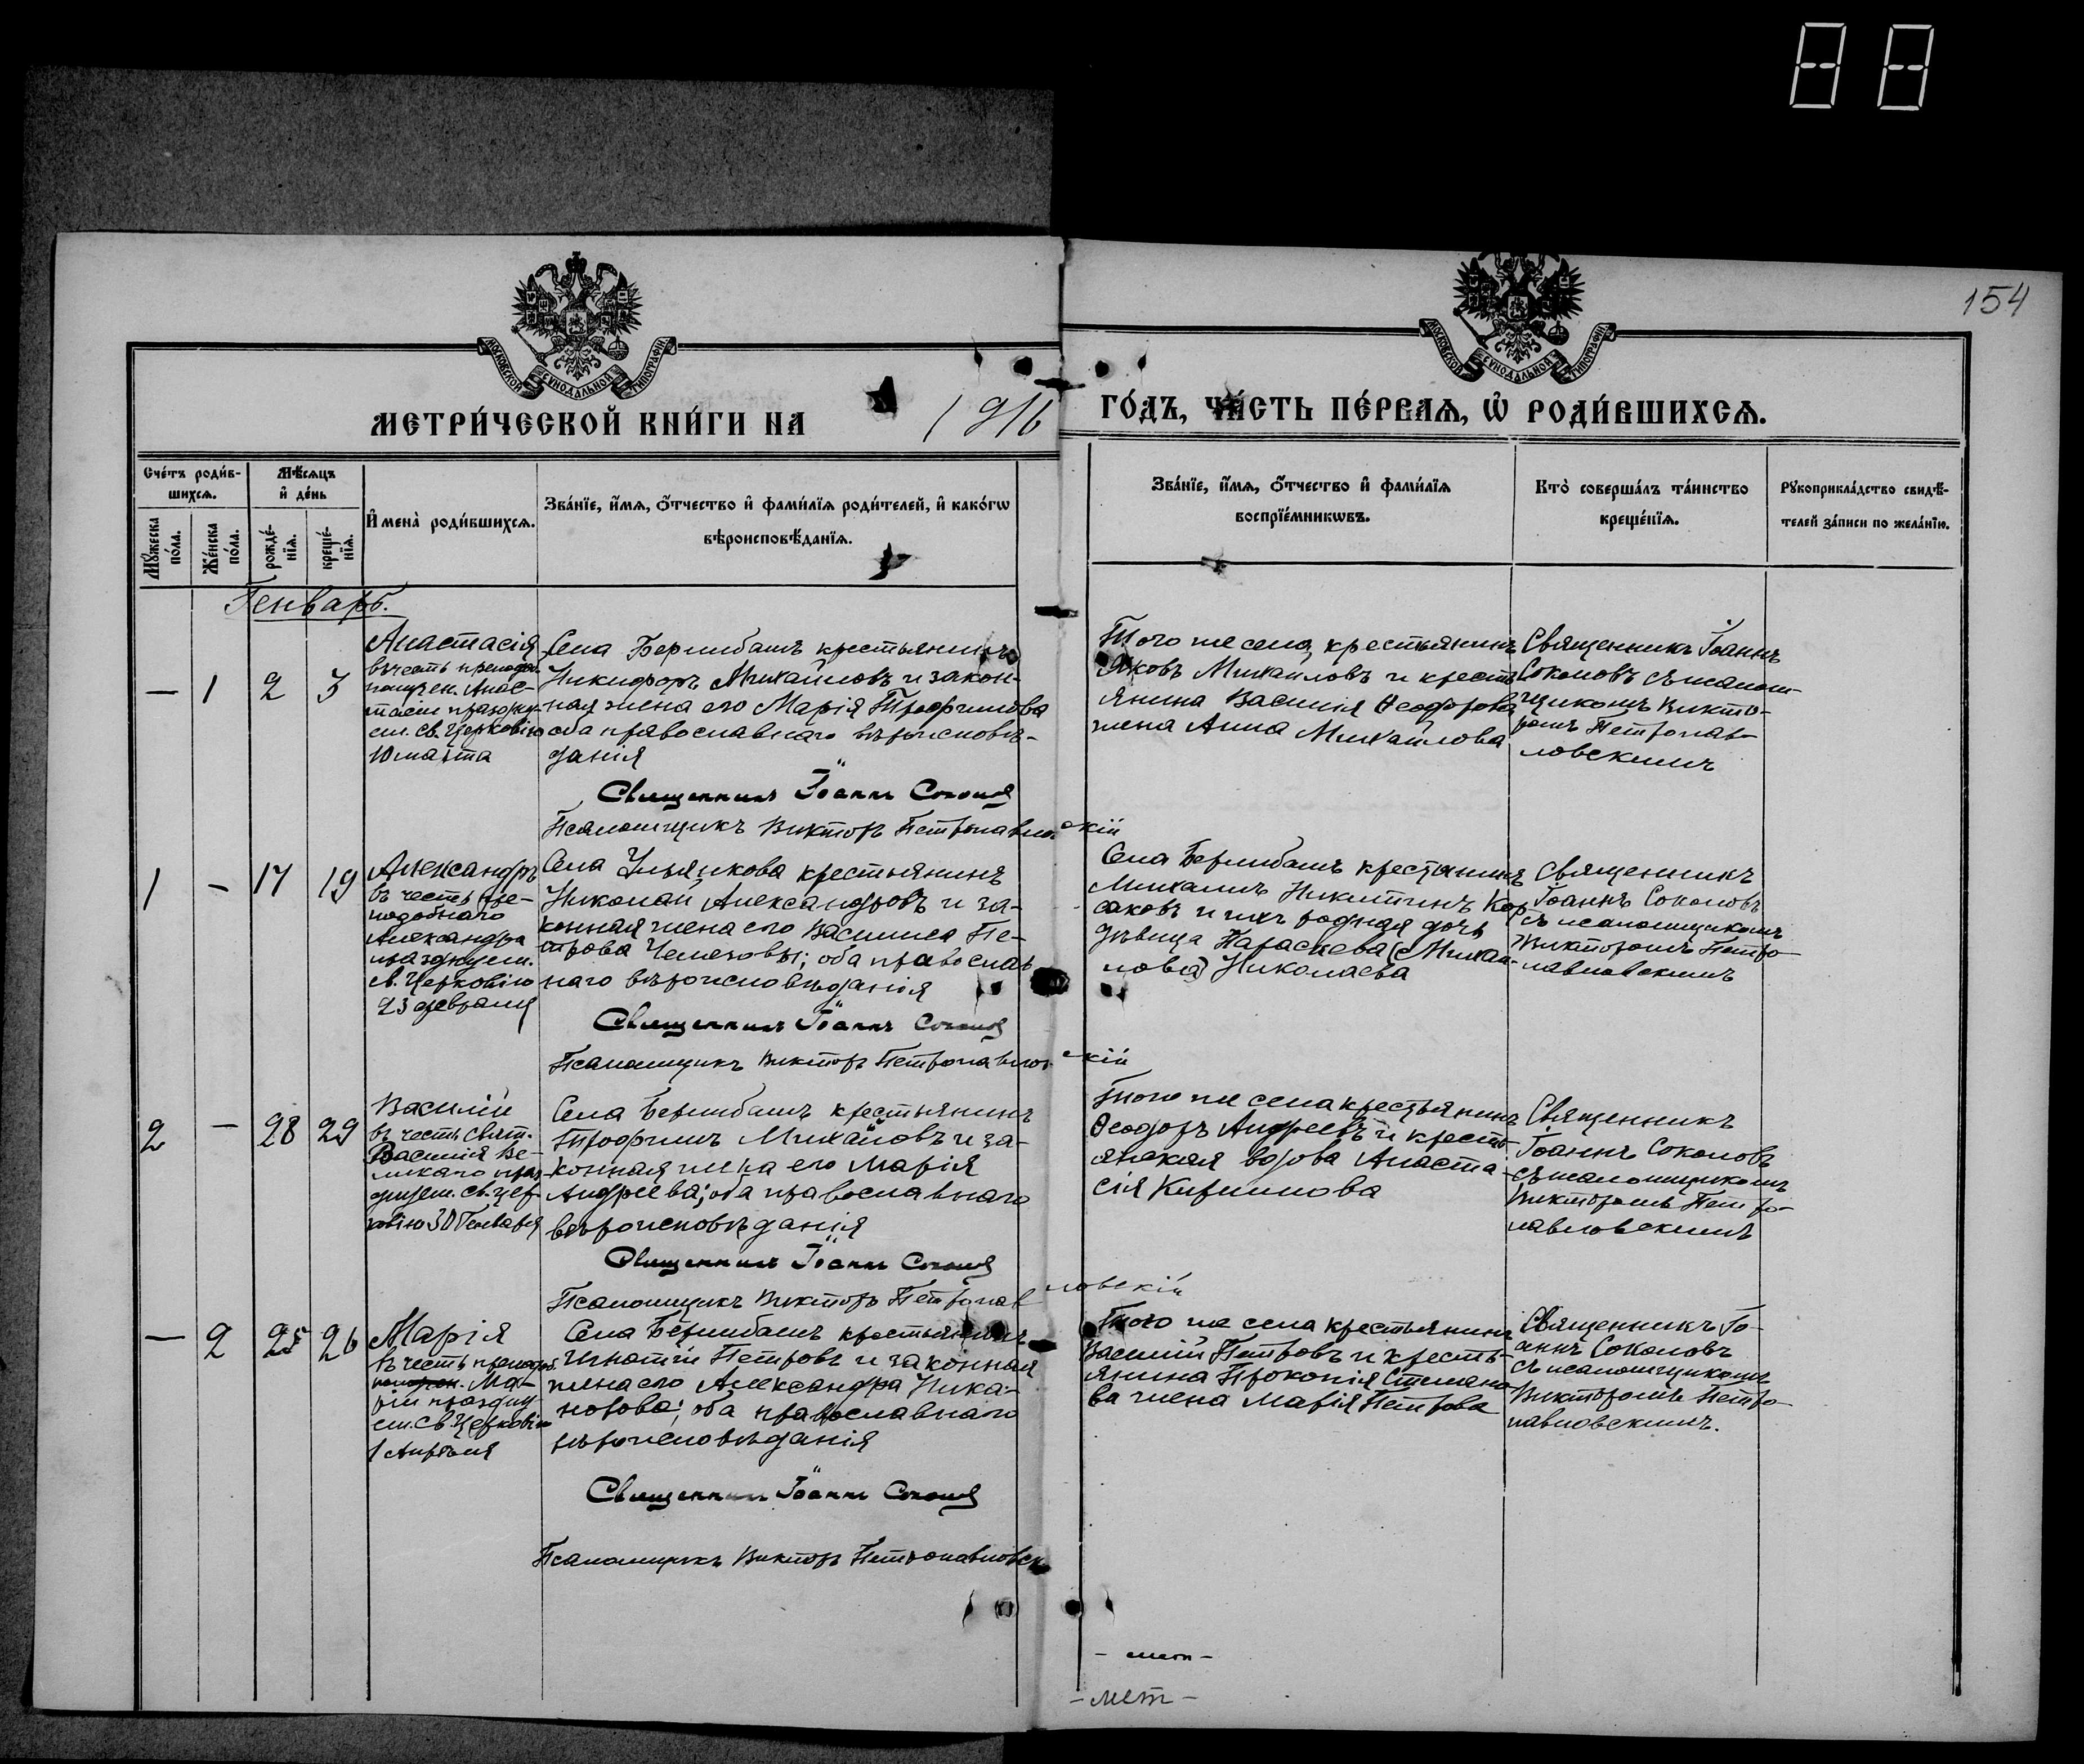 154
МОСКОВСКОЙ СѴНОДАЛЬНОЙ ТИПОГРАФІИ
МОСКОВСКОЙ СѴНОДАЛЬНОЙ ТИПОГРАФІИ
МЕТРИ́ЧЕСКОЙ КНИ́ГИ НА 1916 ГО́ДЪ, ЧА́СТЬ ПЕ́РВАѦ, Ѽ РОДИ́ВШИХСѦ.
Сче́тъ роди́в-
шихсѧ.
Мꙋ́жеска
по́ла.
Же́нска
по́ла.
Мѣ́сѧцъ
и҆ де́нь
рожде́-
нїѧ.
креще́-
нїѧ.
И҆мена̀ роди́вшихсѧ.
Зва́нїе, и҆́мѧ, ѻ҆́тчество и҆ фами́лїѧ роди́телей, и҆ како́гѡ
вѣроисповѣ́данїѧ.
Зва́нїе, и҆́мѧ, ѻ҆́тчество и҆ фами́лїѧ
воспрїе́мникѡвъ.
Кто̀ соверша́лъ та́инство
креще́нїѧ.
Рꙋкоприкла́дство свидѣ́-
телей за́писи по жела́нїю.
Генварь.
— 1 2 3
Анастасія
въ честь преподоб.
мучен. Анас-
тасіи праздну-
ем. Св. Церковію
10 марта
Села Берлибашъ крестьянинъ
Никифоръ Михайловъ и закон-
ная жена его Марія Трофимова
оба православнаго вѣроисповѣ-
данія
Священникъ Іоаннъ Соколов
Псаломщикъ Викторъ Петропавловскій
Того же села крестьянинъ
Яковъ Михаиловъ и кресть-
янина Василія Ѳеодорова
жена Анна Михайлова
Священникъ Іоаннъ
Соколовъ съ псалом-
щикомъ Викто-
ромъ Петропав-
ловскимъ
1 — 17 19
Александръ
въ честь пре-
подобнаго
Александра
празднуем.
св. Церковію
23 февраля
Села крестьянинъ
Николай Александровъ и за-
конная жена его Василиса Пе-
трова оба православ
наго вѣроисповѣданія
Священникъ Іоаннъ Соколов
Псаломщикъ Викторъ Петропавловскій
Села Берлибашъ крестьянинъ
Михаилъ Никитинъ Кор
саковъ и ихъ родная дочь
дѣвица Параскева (Михаи-
лова) Николаева
Священникъ
Іоаннъ Соколовъ
съ псаломщикомъ
Викторомъ Петро-
павловскимъ
2 — 28 29
Василій
въ честь свят.
Василія Ве-
ликаго праз-
днуем. св. цер-
ковію 30 Генваря
Села Берлибашъ крестьянинъ
Трофимъ Михайловъ и за-
конная жена его Марія
Андреева; оба православнаго
вѣроисповѣданія
Священникъ Іоаннъ Соколов
Псаломщикъ Викторъ Петропавловскій
Того же села крестьянинъ
Ѳеодоръ Андреевъ и кресть-
янская вдова Анаста-
сія Кирилова
Священникъ
Іоаннъ Соколовъ
съ псаломщикомъ
Викторомъ Петро-
павловскимъ
— 2 25 26
Марія
въ честь преподоб.
Ма-
ріи праздну-
ем. Св. Церковію
1 Апрѣля
Села Берлибашъ крестьянинъ
Игнатій Петровъ и законная
жена его Александра Ника-
норова; оба православнаго
вѣроисповѣданія
Священникъ Іоаннъ Соколов
Псаломщикъ Викторъ Петропавловск
Того же села крестьянинъ
Василій Петровъ и кресть-
янина Прокопія Степано-
ва жена Марія Петрова
Священникъ Іо-
аннъ Соколовъ
съ псаломщикомъ
Викторомъ Петро-
павловскимъ.